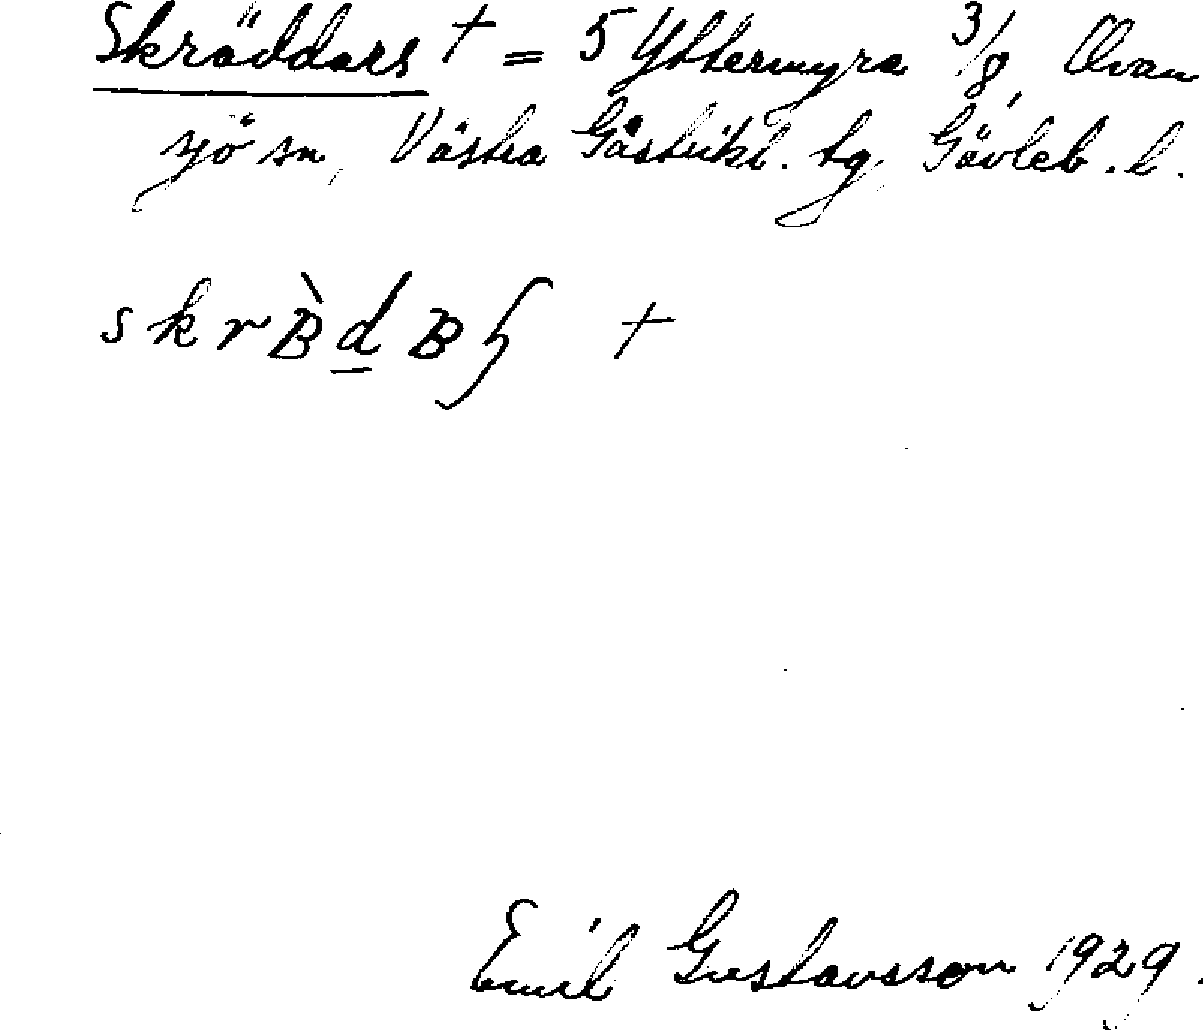 Skräddars † = 5 Yttermyra 3/8, Ovan
sjö sn, Västra Gästrikl. tg, Gävleb. l.
skrB̀d̲Bɧ †
Emil Gustavsson 1929.